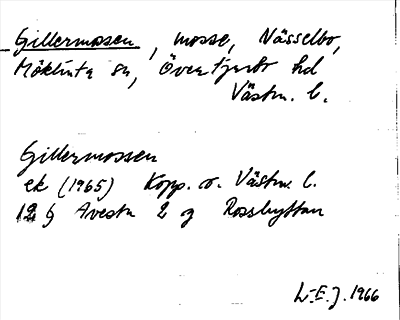 Gillermossen, mosse, Nässelbo,
Möklinta sn, Övertjurbo hd
Västm. l.
Gillermossen
ek (1965) Kopp. o. Västm. l.
12 g Avesta 2 g Rosshyttan
L-E.J. 1966